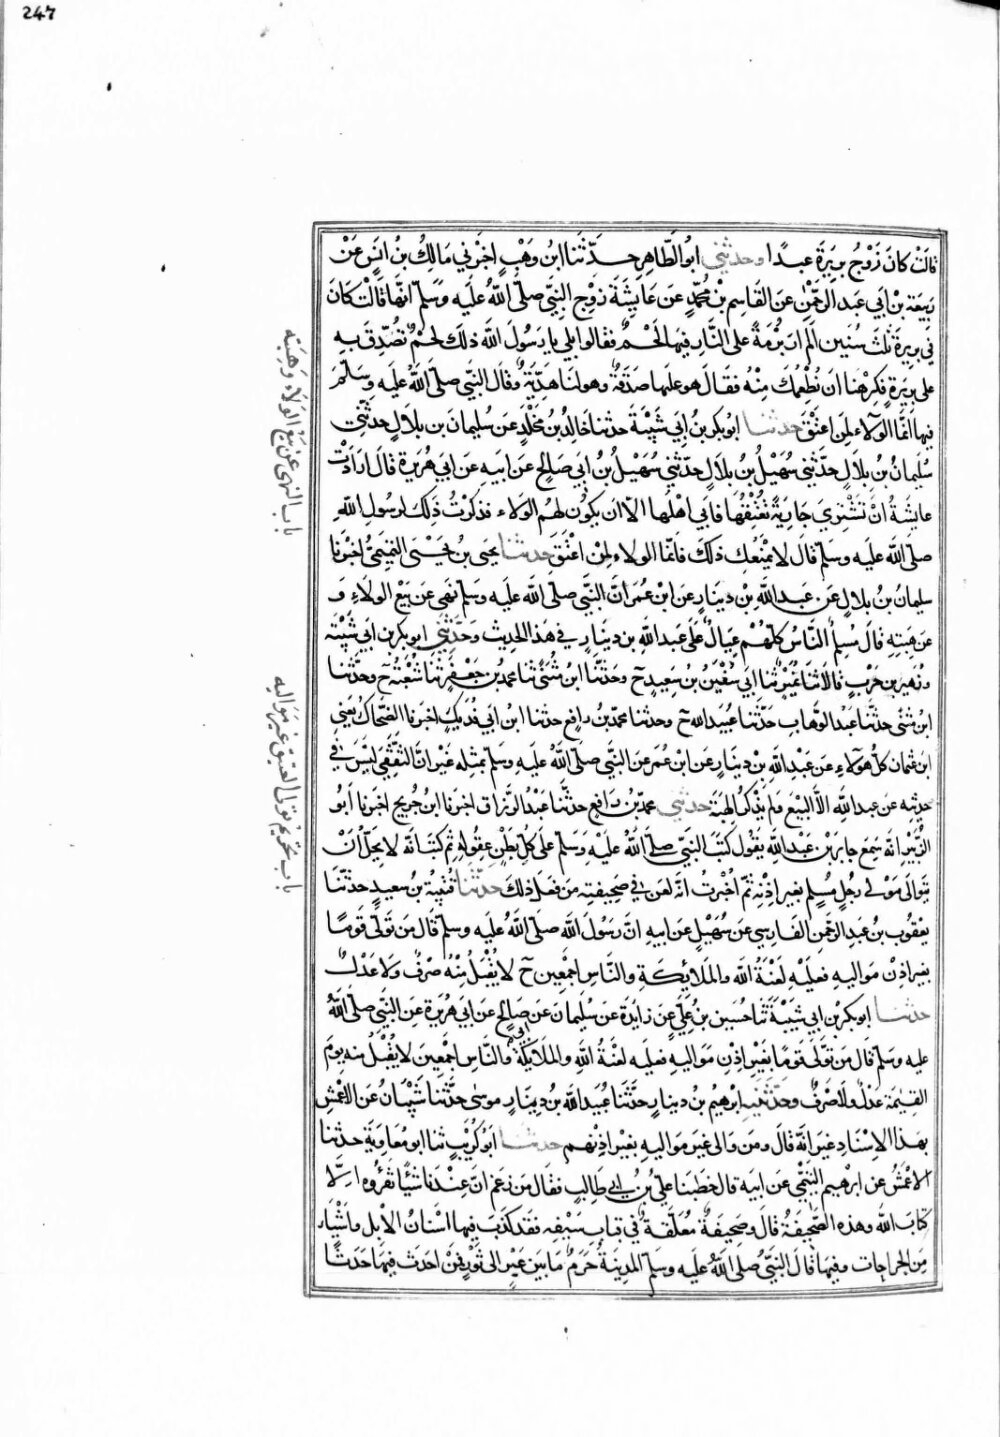 247
قالت كان زوج بريرة عبدًا وحدثني ابو الطاهر حدثنا ابن وهب اخبرني مالك بن انس عن
ربيعة بن ابي عبد الرحمن عن القاسم بن محمد عن عايشة زوج النبي صلى الله عليه وسلم انها قالت كان
في بريرة ثلث سنين الم ار برمة على النار فيها لحم فقالوا بلى يا رسول الله ذلك لحم تصدق به
على بريرة فكرهنا ان نطعمك منه فقال هو عليها صدقة وهو لنا هدية وقال النبي صلى الله عليه وسلم
فيها انما الولاء لمن اعتق حدثنا ابو بكر بن ابي شيبة حدثنا خالد بن مخلد عن سليمان بن بلال حدثني
سليمان بن بلال حدثني سهيل بن بلال حدثني سهيل بن ابي صالح عن ابيه عن ابي هريرة قال ارادت
عايشة ان تشتري جارية تعتقها فابي اهلها الا ان يكون لهم الولاء فذكرت ذلك لرسول الله
صلى الله عليه وسلم قال لا يمنعك ذلك فانما الولاء لمن اعتق حدثنا يحيى بن يحيى التميمي اخبرنا
سليمان بن بلال عن عبد الله بن دينار عن ابن عمر ان النبي صلى الله عليه وسلم نهى عن بيع الولاء و
عن هبته قال مسلم الناس كلهم عيال على عبد الله بن دينار في هذا الحديث وحدثني ابو بكر بن ابي شيبة
وزهير بن حرب قالا ثنا عيينة ثنا ابي سفين بن سعيد ح وحدثنا ابن مثنى ثنا محمد بن جعفر ثنا شعبة ح وحدثنا
ابن مثنى حدثنا عبد الوهاب حدثنا عبيد الله ح وحدثنا محمد بن رافع حدثنا ابن ابي فديك اخبرنا الضحاك يعني
ابن عثمان كل هولاء عن عبد الله بن دينار عن ابن عمر عن النبي صلى الله عليه وسلم بمثله غير ان الثقفي ليس في
حديثه عن عبد الله الا البيع ولم يذكر الهبة حدثني محمد بن رافع حدثنا عبد الرزاق اخبرنا ابن جريج اخبرنا ابو
الزبير انه سمع جابر بن عبد الله يقول كتب النبي صلى الله عليه وسلم على كل بطن عقوله ثم كتب انه لا يحل ان
يتوالى مولى رجل مسلم بغير اذنه ثم اخبرت انه لعن في صحيفته من فعل ذلك حدثنا قتيبة بن سعيد حدثنا
يعقوب بن عبد الرحمن الفارسي عن سهيل عن ابيه ان رسول الله صلى الله عليه وسلم قال من تولى قومًا
بغير اذن مواليه فعليه لعنة الله والملائكة والناس اجمعين ح لا يقبل منه صرف ولا عدل
حدثنا ابو بكر بن ابي شيبة ثنا حسين بن علي عن زايدة عن سليمان عن ابي صالح عن ابي هريرة عن النبي صلى الله
عليه وسلم قال من تولى قومًا بغير اذن مواليه فعليه لعنة الله والملايكة والناس اجمعين لا يقبل منه يوم
القيمة عدل ولا صرف وحدثنيه ابرهيم بن دينار حدثنا عبيد الله بن دينار موسى حدثنا شيبان عن الاعمش
بهذا الاسناد غير انه قال ومن والى غير مواليه بغير اذنهم حدثنا ابو كريب ثنا ابو معاوية حدثنا
الاعمش عن ابرهيم التيمي عن ابيه قال خطبنا علي بن ابي طالب فقال من زعم ان عندنا شيًا نقروه الا
كتاب الله وهذه الصحيفة قال وصحيفة معلقة في قراب سيفه فقد كذب فيها اسنان الابل واشيا
من الجراحات وفيها قال النبي صلى الله عليه وسلم المدينة حرم ما بين عير الى ثور فمن احدث فيها حدثا
باب النهى عن بيع الولاء وهبته
باب تحريم تولى العتيق غير مواليه